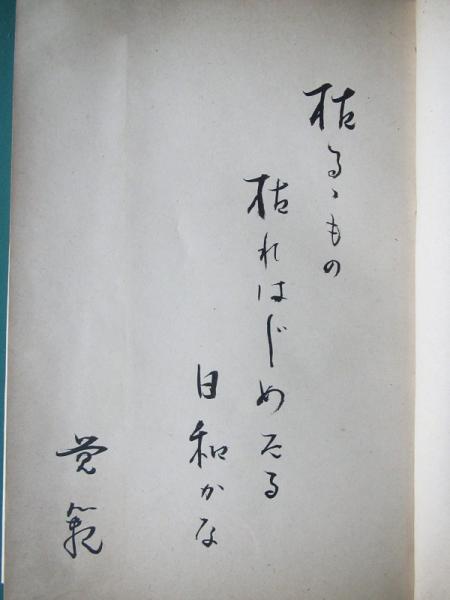 枯るゝもの
枯れはじめたる
日和かな
覚範